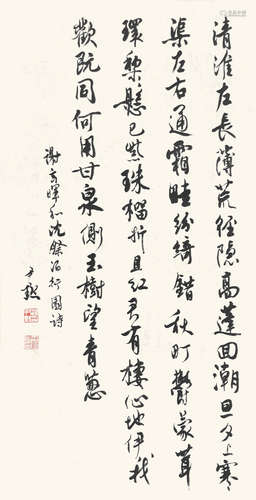 清淮左長薄荒徑隱高蓬回潮旦夕上寒
渠左右通霜畦紛綺錯秋町鬱蒙茸
環梨懸已紫珠榴折且紅君有棲心地伊我
歡既同何用甘泉側玉樹望青蔥
謝玄暉和沈祭酒行園詩
尹默